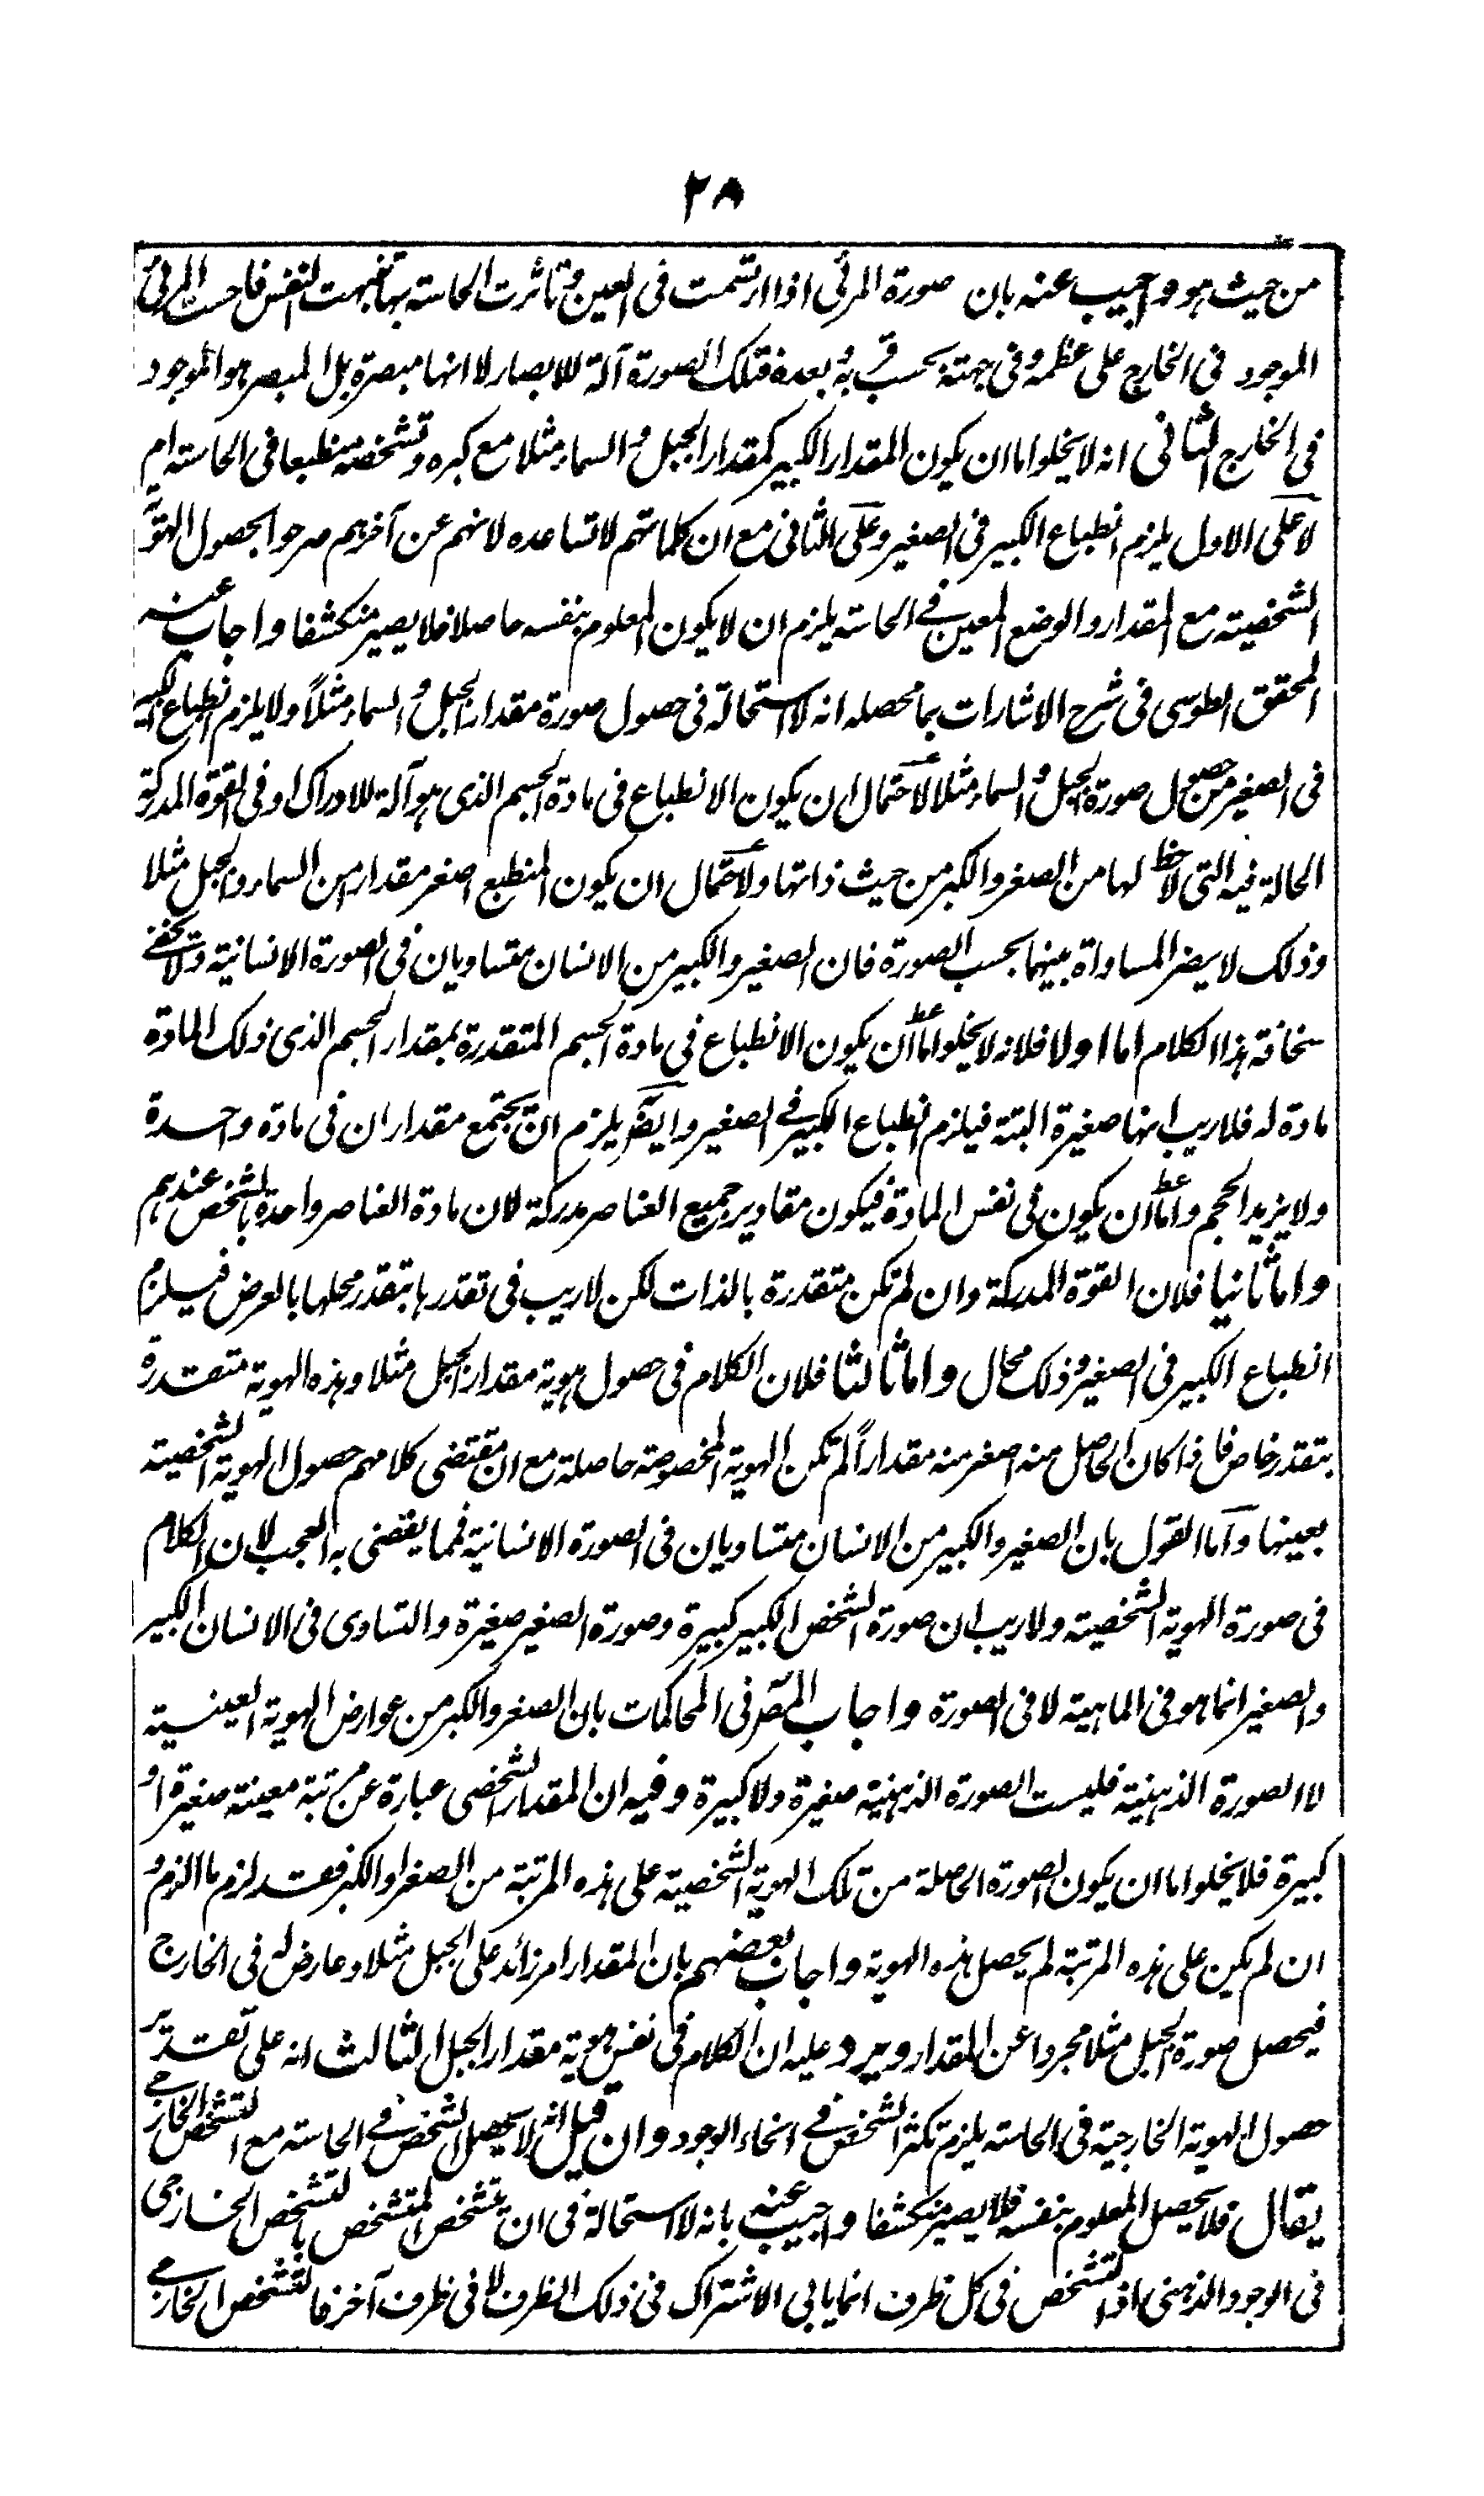 ٢٨
من حيث هو واجيب عنه بان صورة المرئى اذا ارتسمت فى العين وتاثرت الحاسته بها تنبهت النفس فاحست المرئى
الموجود فى الخارج على عظمه وفى جهته بحسب قربه وبعده فتلك الصورة آلة للابصار لا انها مبصرة بل المبصر هو الموجود
فى الخارج الثانى انه لا يخلو اما ان يكون المقدار الكبير كمقدار الجبل والسماء مثلا مع كبره وتشخصه منطبعا فى الحاسته ام
لا على الاول يلزم انطباع الكبير فى الصغير وعلى الثانى مع ان كلماتهم لا تساعده لانهم عن آخرهم صرحوا بحصول الهوية
الشخصيته مع المقدار والوضع المعين فى الحاسته يلزم ان لا يكون المعلوم بنفسه حاصلا فلا يصير منكشفا واجاب عنه
المحقق الطوسى فى شرح الاشارات بما محصله انه لا استحالة فى حصول صورة مقدار الجبل والسماء مثلاً ولا يلزم انطباع الكبير
فى الصغير من حصول صورة الجبل والسماء مثلا لاحتمال ان يكون الانطباع فى مادة الجسم الذى هو آلة للادراك او فى القوة المدركة
الحالة فيه التى لا حظ لها من الصغر والكبر من حيث ذاتها ولاحتمال ان يكون المنطبع اصغر مقدارا من السماء والجبل مثلا
وذلك لا يضر المساواة بينهما بحسب الصورة فان الصغير والكبير من الانسان متساويان فى الصورة الانسانية ولا يخفى
سخافة هذا الكلام اما اولا فلانه لا يخلو اما ان يكون الانطباع فى مادة الجسم المتقدرة بمقدار الجسم الذى ذلك المادة
مادة له فلا ريب انها صغيرة البتة فيلزم انطباع الكبير فى الصغير وايضا يلزم ان يجتمع مقداران فى مادة واحدة
ولا يزيد الحجم واما ان يكون فى نفس المادة فيكون مقادير جميع العناصر مدركة لان مادة العناصر واحدة بالشخص عندهم
واما ثانيا فلان القوة المدركة وان لم تكن متقدرة بالذات لكن لا ريب فى تقدرها بتقدر محلها بالعرض فيلزم
انطباع الكبير فى الصغير وذلك محال واما ثالثا فلان الكلام فى حصول هوية مقدار الجبل مثلا وهذه الهوية متقدرة
بتقدر خاص فاذا كان الحاصل منه اصغر منه مقداراً لم تكن الهوية المخصوصة حاصلة مع ان مقتضى كلامهم حصول الهوية الشخصية
بعينها واما القول بان الصغير والكبير من الانسان متساويان فى الصورة الانسانية فمما يقضى به العجب لان الكلام
فى صورة الهوية الشخصيته ولا ريب ان صورة الشخص الكبير كبيرة وصورة الصغير صغيرة والتساوى فى الانسان الكبير
والصغير انما هو فى الماهية لا فى الصورة واجاب المص فى المحاكمات بان الصغر والكبر من عوارض الهوية العينية
لا الصورة الذهنية فليست الصورة الذهنية صغيرة ولا كبيرة وفيه ان المقدار الشخصى عبارة عن مرتبة معينة صغيرة او
كبيرة فلا يخلو اما ان يكون الصورة الحاصلة من تلك الهوية الشخصية على هذه المرتبة من الصغر او الكبر فقد لزم ما الزم و
ان لم يكن على هذه المرتبة لم يحصل هذه الهوية واجاب بعضهم بان المقدار امر زائد على الجبل مثلا وعارض له فى الخارج
فيحصل صورة الجبل مثلا مجردا عن المقدار ويرد عليه ان الكلام فى نفس هوية مقدار الجبل الثالث انه على تقدير
حصول الهوية الخارجية فى الحاسته يلزم تكثر الشخص فى انحاء الوجود وان قيل انه لا يحصل الشخص فى الحاسته مع التشخص الخارجى
يقال فلا يحصل المعلوم بنفسه فلا يصير منكشفا واجيب عنه بانه لا استحالة فى ان يتشخص المتشخص بالتشخص الخارجى
فى الوجود الذهنى اذ التشخص فى كل ظرف انما يابى الاشتراك فى ذلك الظرف لا فى ظرف آخر فالتشخص الخارجى